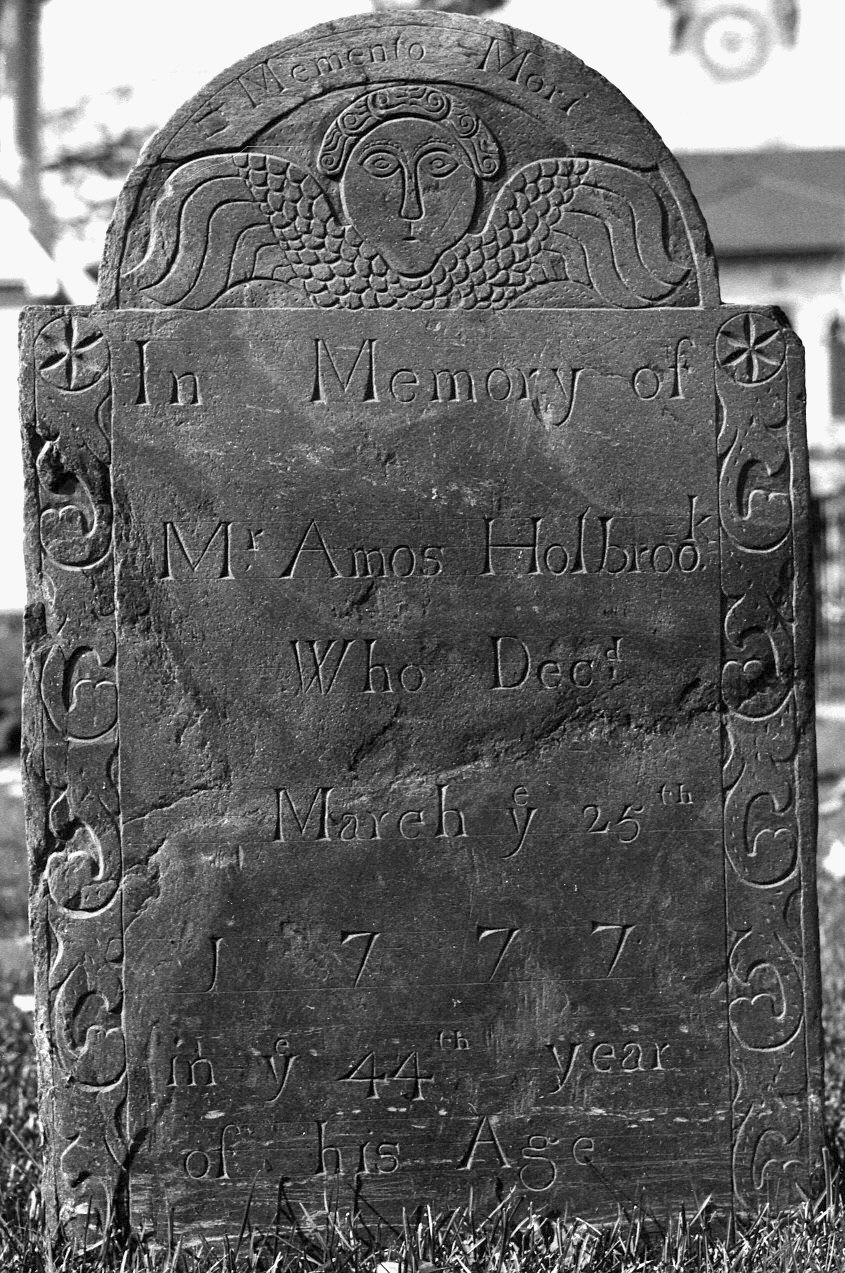 Memento Mori
In Memory of
Mr Amos Holbrook
Who Decd
March ye 25th
1777
in ye 44th year
of his Age